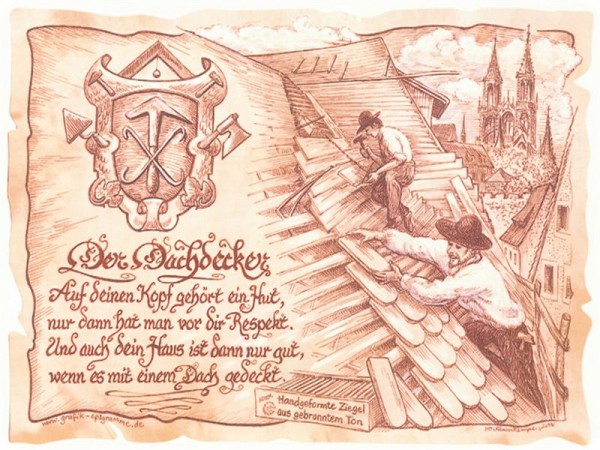 Der Dachdecker
Auf deinen Kopf gehört ein Hut,
nur dann hat man vor dir Respekt.
Und auch dein Haus ist dann nur gut,
wenn es mit einem Dach gedeckt.
Handgeformte Ziegel
aus gebranntem Ton